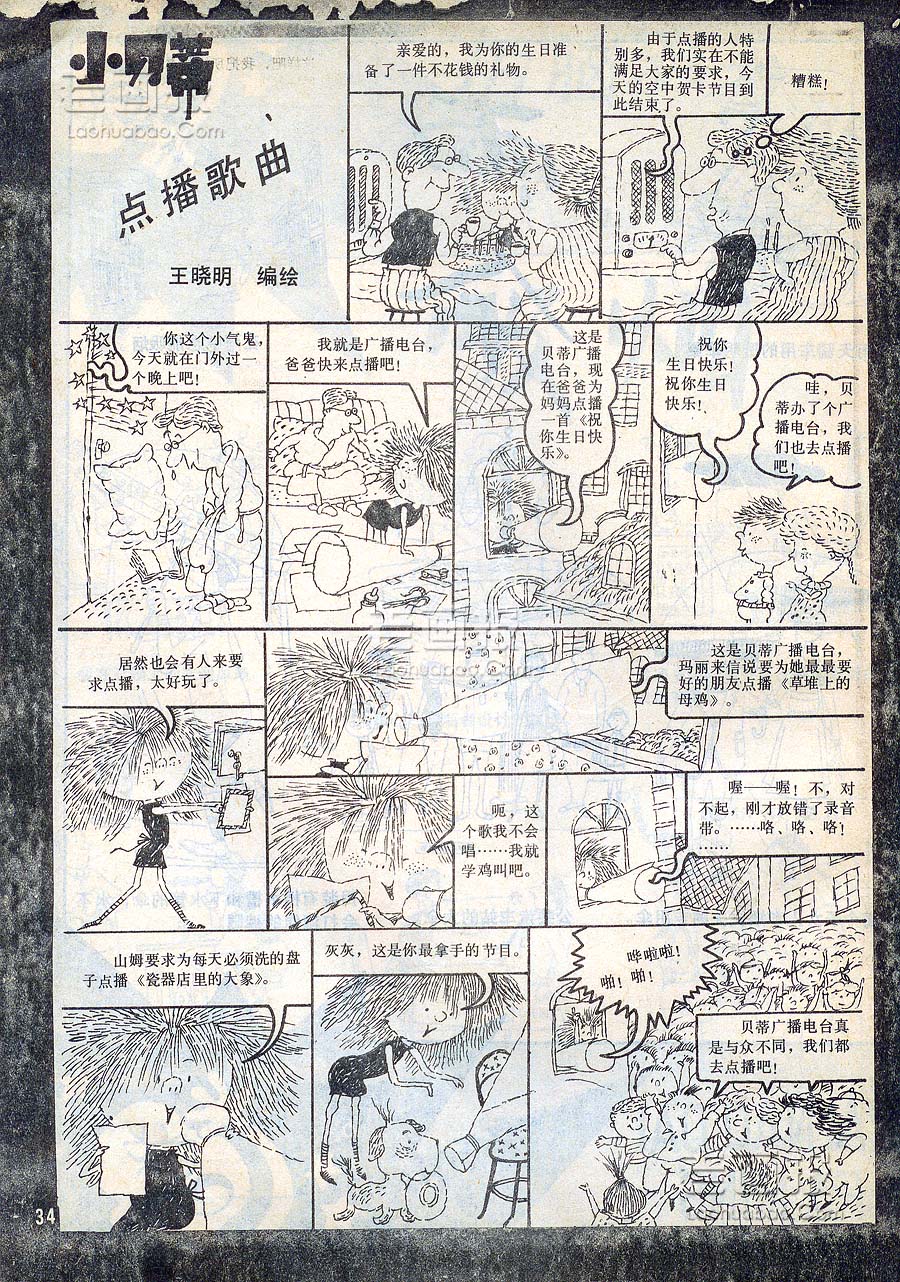 小贝蒂
点播歌曲
王晓明 编绘
亲爱的，我为你的生日准
备了一件不花钱的礼物。
由于点播的人特
别多，我们实在不能
满足大家的要求，今
天的空中贺卡节目到
此结束了。
糟糕！
你这个小气鬼，
今天就在门外过一
个晚上吧！
我就是广播电台，
爸爸快来点播吧！
这是
贝蒂广播
电台，现
在爸爸为
妈妈点播
一首《祝
你生日快
乐》。
祝你
生日快乐！
祝你生日
快乐！
哇，贝
蒂办了个广
播电台，我
们也去点播
吧！
居然也会有人来要
求点播，太好玩了。
这是贝蒂广播电台，
玛丽来信说要为她最最要
好的朋友点播《草堆上的
母鸡》。
呃，这
个歌我不会
唱……我就
学鸡叫吧。
喔——喔！不，对
不起，刚才放错了录音
带。……咯、咯、咯！
……
山姆要求为每天必须洗的盘
子点播《瓷器店里的大象》。
灰灰，这是你最拿手的节目。
哗啦啦！
啪！啪！
贝蒂广播电台真
是与众不同，我们都
去点播吧！
34
老画报
Laohuabao.Com
老画报
Laohuabao.Com